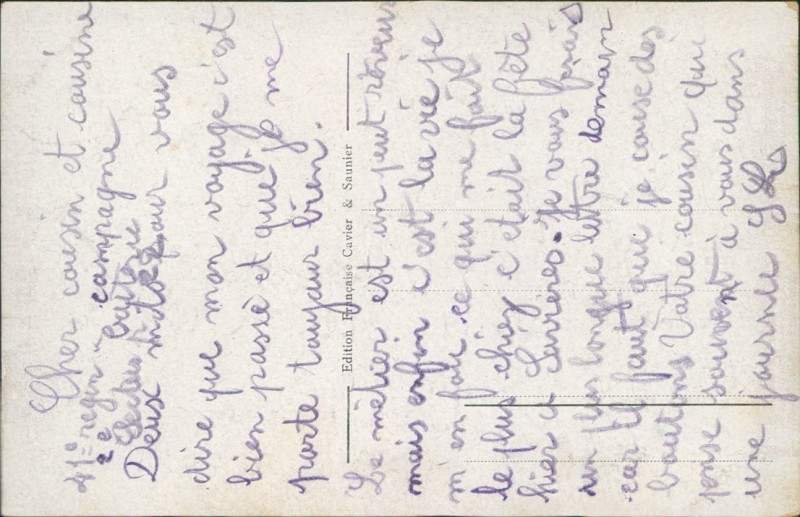 Cher cousin et cousine
41e regn
campagne
2e
Deux mots pour vous
dire que mon voyage c'est
bien passé et que je me
porte toujour bien.
Edition Française Cavier & Saunier
Le métier est un peut
mais enfin c'est la vie je
m en fou ce qui me fait
le plus chiez c'était la fête
hier a je vous frais
un plus longue lettre demain
car il faut que je couse des
boutons Votre cousin qui
pense souvent à vous dans
une journee